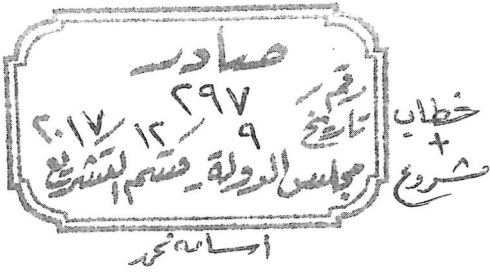 صادر
رقم ٢٩٧
تاريخ ٩ / ١٢ / ٢٠١٧
مجلس الدولة - قسم التشريع
خطاب
+
مشروع